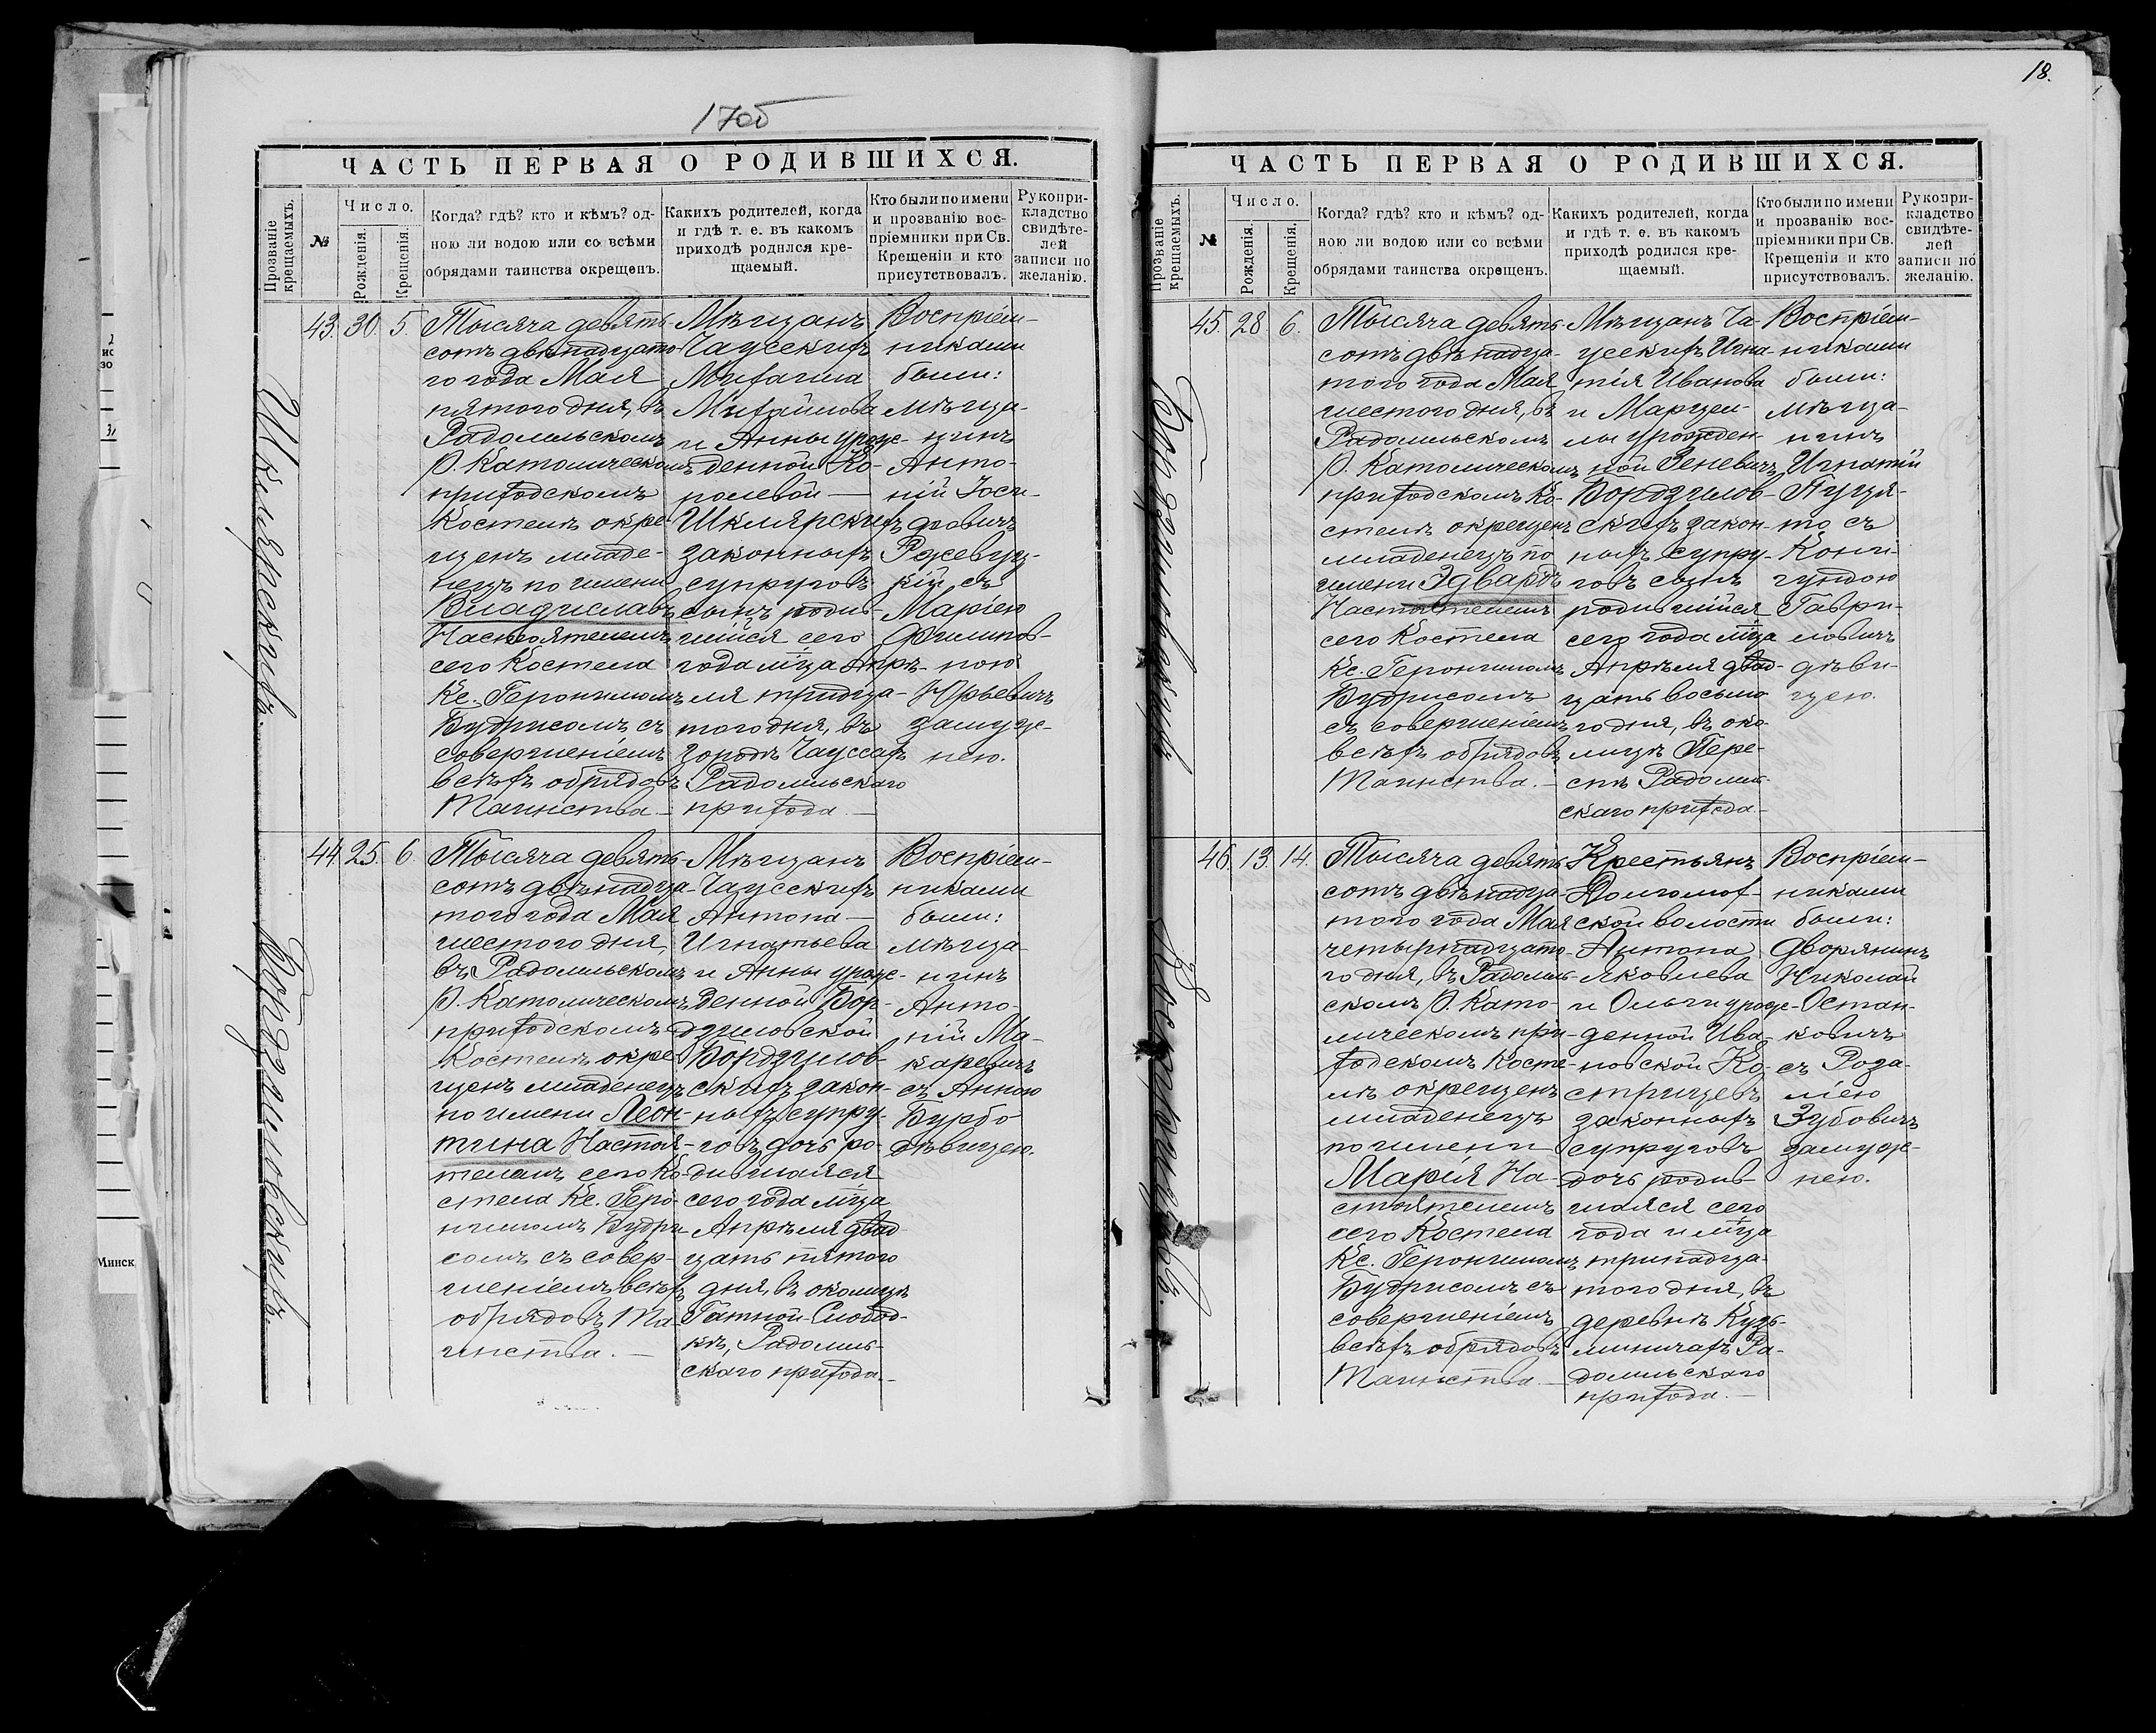 17об
ЧАСТЬ ПЕРВАЯ О РОДИВШИХСЯ.
Прозваніе крещаемыхъ.
№
Число.
Рожденія.
Крещенія.
Когда? гдѣ? кто и кѣмъ? од-
ною ли водою или со всѣми
обрядами таинства окрещенъ.
Какихъ родителей, когда
и гдѣ т. е. въ какомъ
приходѣ родился кре-
щаемый.
Кто были по имени
и прозванію вос-
пріемники при Св.
Крещеніи и кто
присутствовалъ.
Рукопри-
кладство
свидѣте-
лей
записи по
желанію.
Шклярскій
43. 30. 5.
Тысяча девять-
сотъ двѣнадцато-
го года Мая
пятого дня, въ
Радомльскомъ
Р. Католическомъ
приходскомъ
Костелѣ окре-
щенъ младе-
нецъ по имени
Владиславъ
Настоятелемъ
сего Костела
Кс. Геронимомъ
Будрисомъ съ
совершеніемъ
всѣхъ обрядовъ
Таинства.—
Мѣщанъ
Чаусскихъ
Михаила
Михайлова
и Анны урож-
денной Ко-
ролевой —
Шклярскихъ
законныхъ
супруговъ
сынъ родив-
шійся сего
года м-ца Апрѣ-
ля тридца-
того дня, въ
городѣ Чауссахъ
Радомльскаго
прихода.—
Воспріем-
никами
были:
мѣща-
нинъ
Анто-
ній Іоси-
фовичъ
кій съ
Маріею
ною
Юрьевичъ
замуж-
нею.
Бордзиловскій
44. 25. 6.
Тысяча девять-
сотъ двѣнадца-
того года Мая
шестого дня,
въ Радомльскомъ
Р. Католическомъ
приходскомъ
Костелѣ окре-
щенъ младенецъ
по имени Леон-
тина Настоя-
телемъ сего Ко-
стела Кс. Геро-
нимомъ Будри-
сомъ съ совер-
шеніемъ всѣхъ
обрядовъ Та-
инства.—
Мѣщанъ
Чаусскихъ
Антона —
Игнатьева
и Анны урож-
денной Бор-
дзиловской
Бордзилов-
скихъ закон-
ныхъ супру-
говъ дочь ро-
дившаяся
сего года м-ца
Апрѣля двад-
цать пятого
дня, въ околицѣ
Гатной-Слобод-
кѣ, Радомль-
скаго прихода.—
Воспріем-
никами
были:
мѣща-
нинъ
Анто-
ній Ма-
каревичъ
съ Анною
Бурбо
дѣвицею.
18.
ЧАСТЬ ПЕРВАЯ О РОДИВШИХСЯ.
Прозваніе крещаемыхъ.
№
Число.
Рожденія.
Крещенія.
Когда? гдѣ? кто и кѣмъ? од-
ною ли водою или со всѣми
обрядами таинства окрещенъ.
Какихъ родителей, когда
и гдѣ т. е. въ какомъ
приходѣ родился кре-
щаемый.
Кто были по имени
и прозванію вос-
пріемники при Св.
Крещеніи и кто
присутствовалъ.
Рукопри-
кладство
свидѣте-
лей
записи по
желанію.
Бордзиловскій
45. 28. 6.
Тысяча девять-
сотъ двѣнадца-
того года Мая
шестого дня, въ
Радомльскомъ
Р. Католическомъ
приходскомъ Ко-
стелѣ окрещенъ
младенецъ по
имени Эдвардъ
Настоятелемъ
сего Костела
Кс. Геронимомъ
Будрисомъ
съ совершеніемъ
всѣхъ обрядовъ
Таинства.—
Мѣщанъ Ча-
усскихъ Игна-
тія Иванова
и Марцел-
лы урожден-
ной Зеневичъ
Бордзилов-
скихъ закон-
ныхъ супру-
говъ сынъ
родившійся
сего года м-ца
Апрѣля двад-
цать восьмо-
го дня, въ око-
лицѣ Пере-
спѣ Радомль-
скаго прихода.—
Воспріем-
никами
были:
мѣща-
нинъ
Игнатій
то съ
Кони-
гундою
Гаври-
ловичъ
дѣви-
цею.
46. 13. 14.
Тысяча девять-
сотъ двѣнадца-
того года Мая
четырнадцато-
го дня, въ Радомль-
скомъ Р. Като-
лическомъ при-
ходскомъ Косте-
лѣ окрещенъ
младенецъ
по имени
Марія На-
стоятелемъ
сего Костела
Кс. Геронимомъ
Будрисомъ съ
совершеніемъ
всѣхъ обрядовъ
Таинства.—
Крестьянъ
Долгомох-
ской волости
Антона
Яковлева
и Ольги урож-
денной Ива-
новской Ко-
стрицевъ
законныхъ
супруговъ
дочь родив-
шаяся сего
года и м-ца
тринадца-
того дня, въ
деревнѣ Кузь-
миничахъ Ра-
домльскаго
прихода.—
Воспріем-
никами
были:
дворянинъ
Николай
Остан-
ковичъ
съ Роза-
ліею
Зубовичъ
замуж-
нею.
Минск